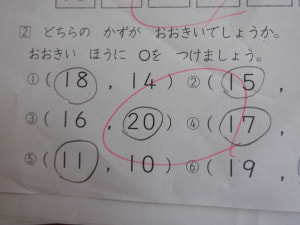 ② どちらの かずが おおきいでしょうか。
おおきい ほうに ○を つけましょう。
①( 18 , 14 ) ②( 15 ,
③( 16 , 20 ) ④( 17 ,
⑤( 11 , 10 ) ⑥( 19 ,